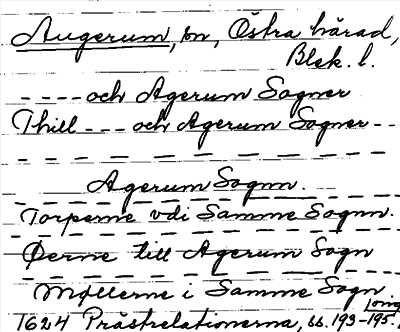 Augerum, sn, Östra härad,
Blek. l.
---- och Agerum Sogner
Thill --- och Agerum Sogner --
Agerum Sognn.
Torperne vdi Samme Sognn.
Øerne till Agerum Sogn
Møllerne i Samme Sogn
1624 Prästrelationerna, ss. 193-195. orig